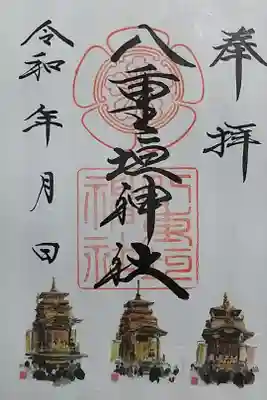 奉拝
八重垣神社
八重垣神社
令和 年 月 日